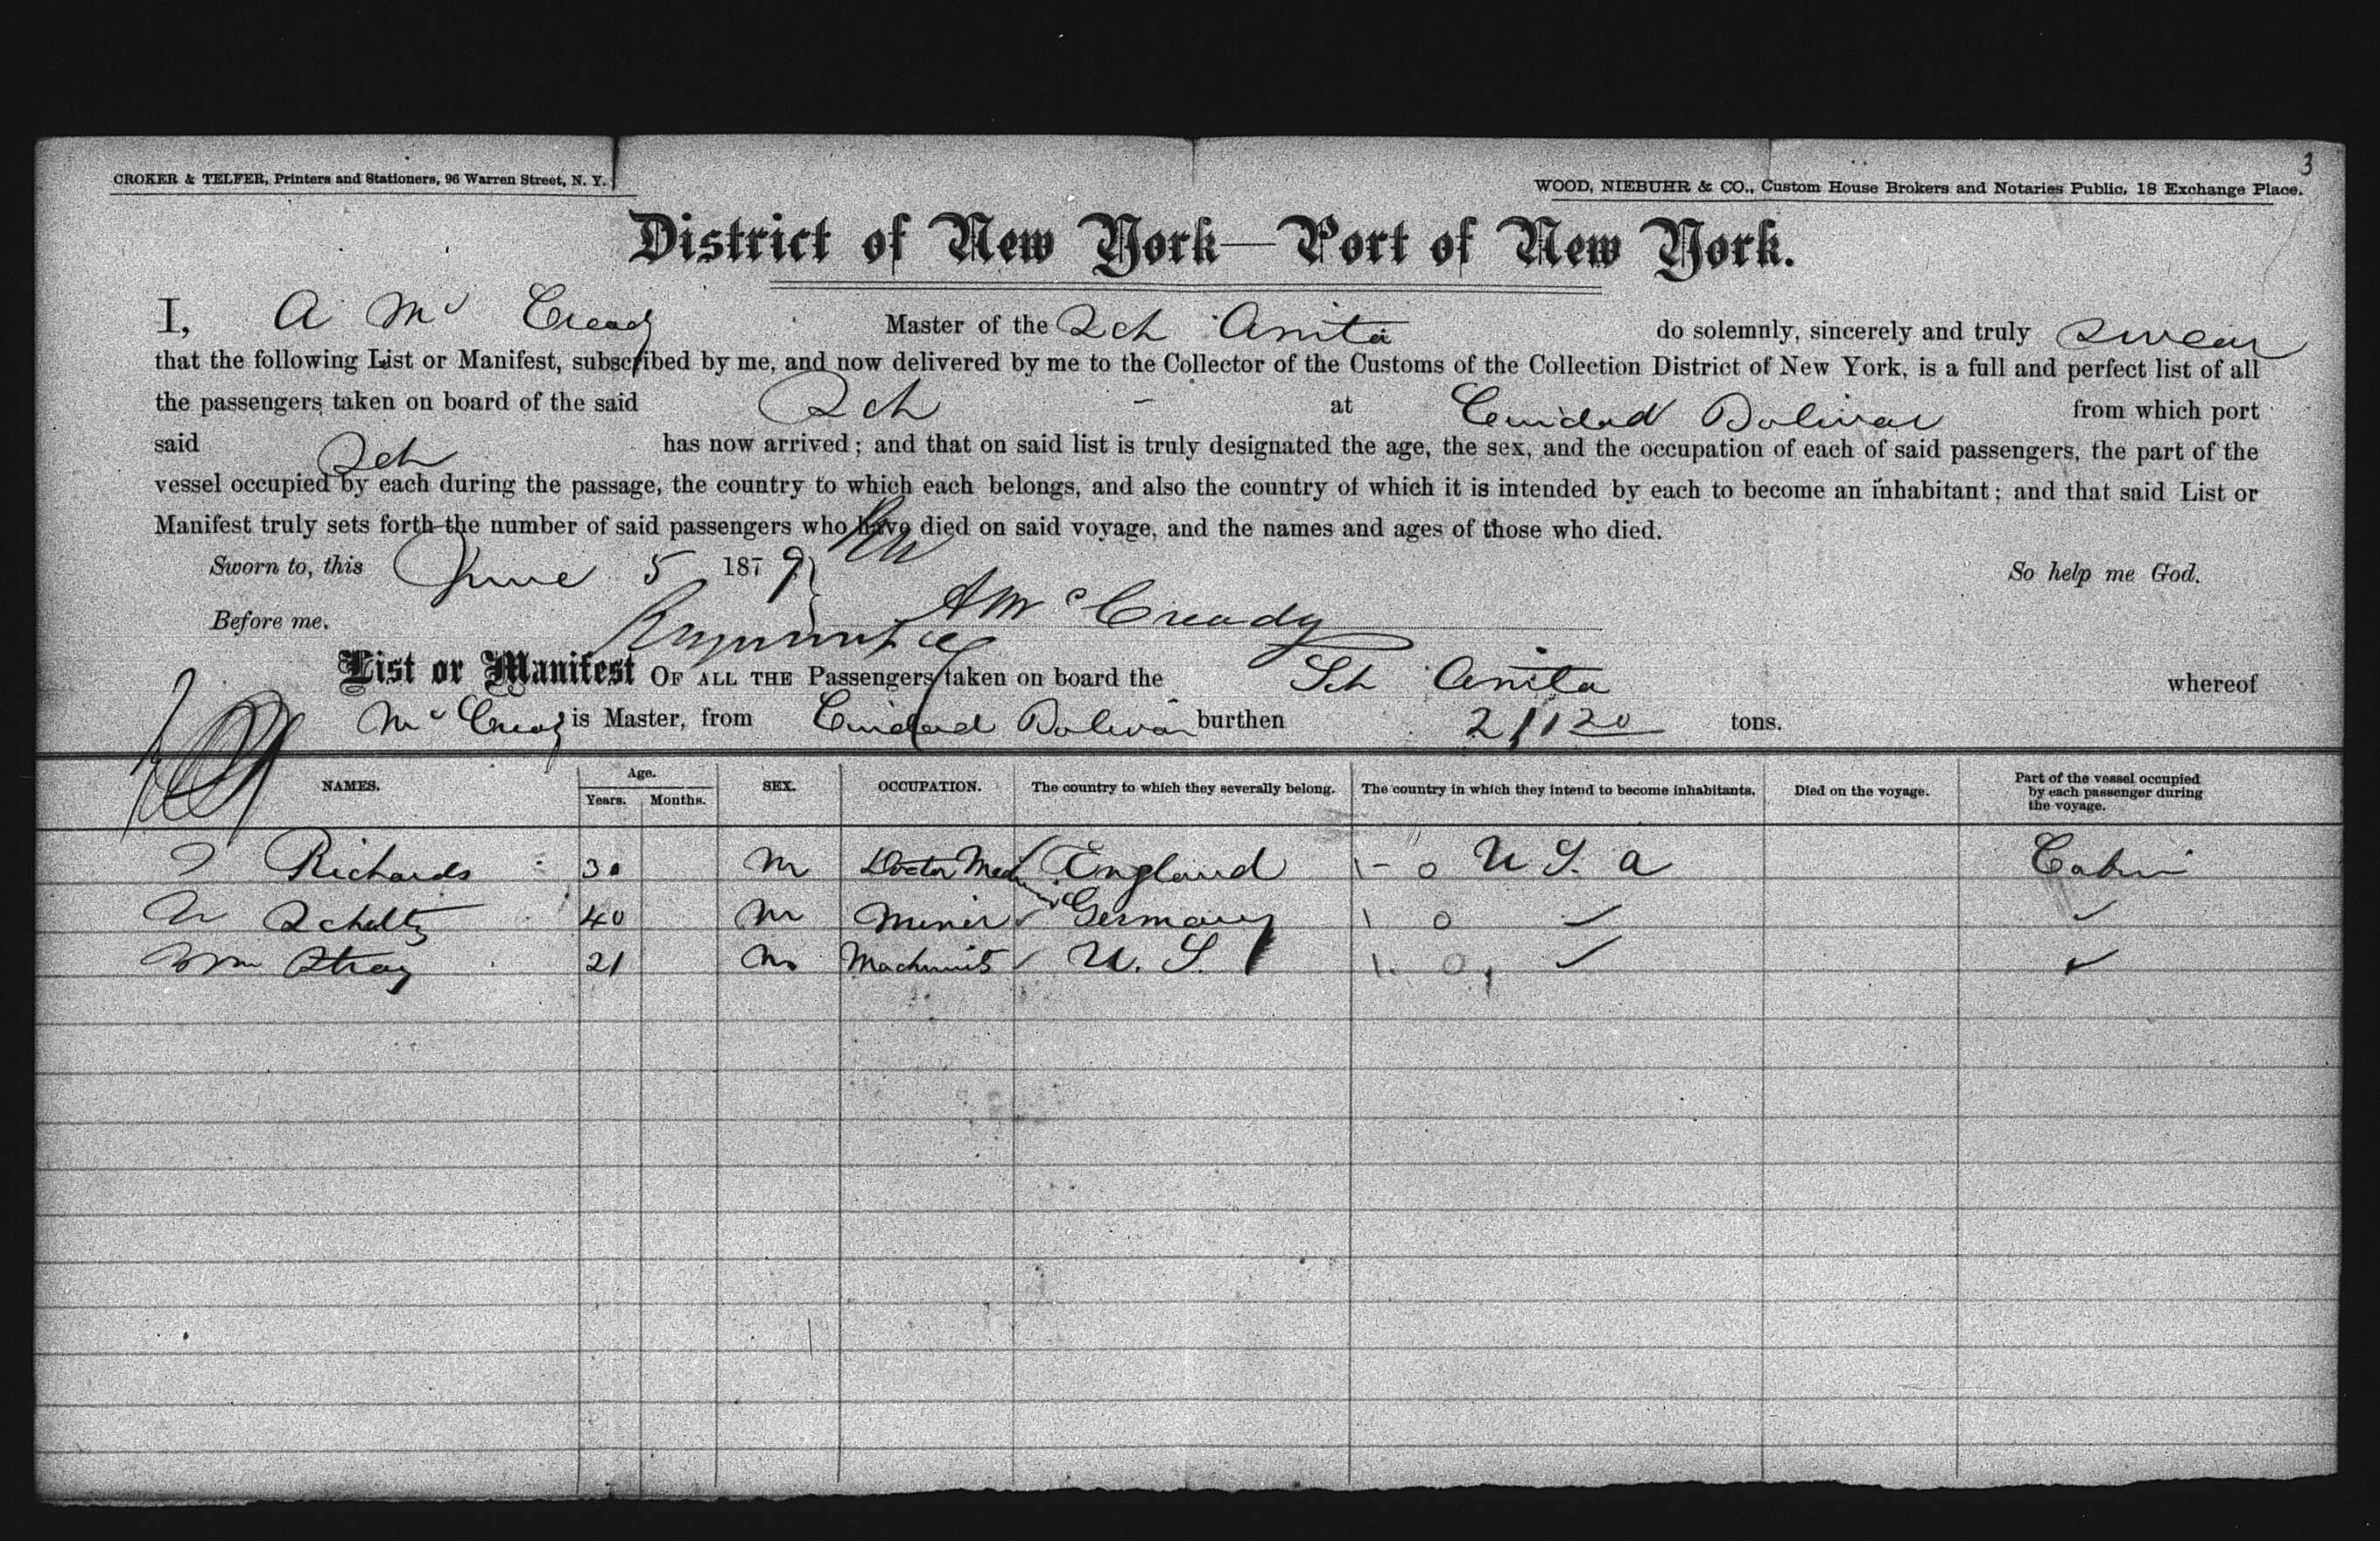 3
CROKER & TELFER, Printers and Stationers, 96 Warren Street, N. Y.
WOOD, NIEBUHR & CO., Custom House Brokers and Notaries Public, 18 Exchange Place.
District of New York—Port of New York.
I, A Mc Cready Master of the Sch Anita do solemnly, sincerely and truly swear
that the following List or Manifest, subscribed by me, and now delivered by me to the Collector of the Customs of the Collection District of New York, is a full and perfect list of all
the passengers taken on board of the said Sch - at Cuidad Bolivar from which port
said Sch has now arrived; and that on said list is truly designated the age, the sex, and the occupation of each of said passengers, the part of the
vessel occupied by each during the passage, the country to which each belongs, and also the country of which it is intended by each to become an inhabitant; and that said List or
Manifest truly sets forth the number of said passengers who have died on said voyage, and the names and ages of those who died.
Sworn to, this June 5 1879 So help me God.
Before me. A Mc Cready
List or Manifest OF ALL THE Passengers taken on board the Sch Anita whereof
Mc Cready is Master, from Cuidad Bolivar burthen tons.
NAMES. Age. Years. Months. SEX. OCCUPATION. The country to which they severally belong. The country in which they intend to become inhabitants. Died on the voyage. Part of the vessel occupied by each passenger during the voyage.
Richards 30 M Doctor Med England U S. a Cabin
Scholtz 40 M Miner Germany
Wm Stray 21 M Machinist U. S.